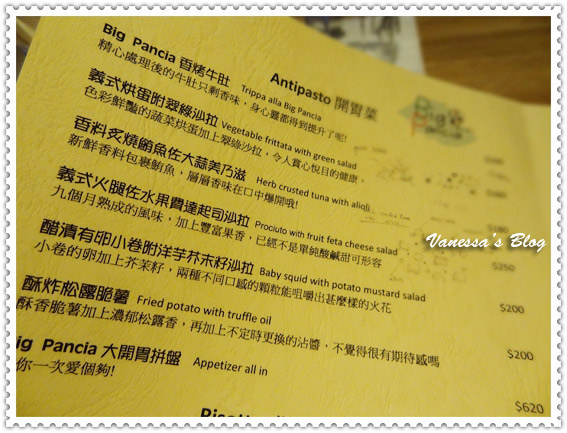 Antipasto 開胃菜
Big Pancia
Big Pancia 香烤牛肚 Trippa alla Big Pancia
精心處理後的牛肚只剩香味，身心靈都得到提升了呢!
義式烘蛋附翠綠沙拉 Vegetable frittata with green salad
色彩鮮豔的蔬菜烘蛋加上翠綠沙拉，令人賞心悅目的健康。
香料炙燒鮪魚佐大蒜美乃滋 Herb crusted tuna with aliqli
新鮮香料包裹鮪魚，層層香味在口中爆開哦!
義式火腿佐水果費達起司沙拉 Prociuto with fruit feta cheese salad
九個月熟成的風味，加上豐富果香，已經不是單純酸鹹甜可形容
$250
醋漬有卵小卷附洋芋芥末籽沙拉 Baby squid with potato mustard salad
小卷的卵加上芥茉籽，兩種不同口感的顆粒能咀嚼出甚麼樣的火花
$200
酥炸松露脆薯 Fried potato with truffle oil
酥香脆薯加上濃郁松露香，再加上不定時更換的沾醬，不覺得很有期待感嗎
$200
ig Pancia 大開胃拼盤 Appetizer all in
你一次愛個夠!
$620
Vanessa's Blog